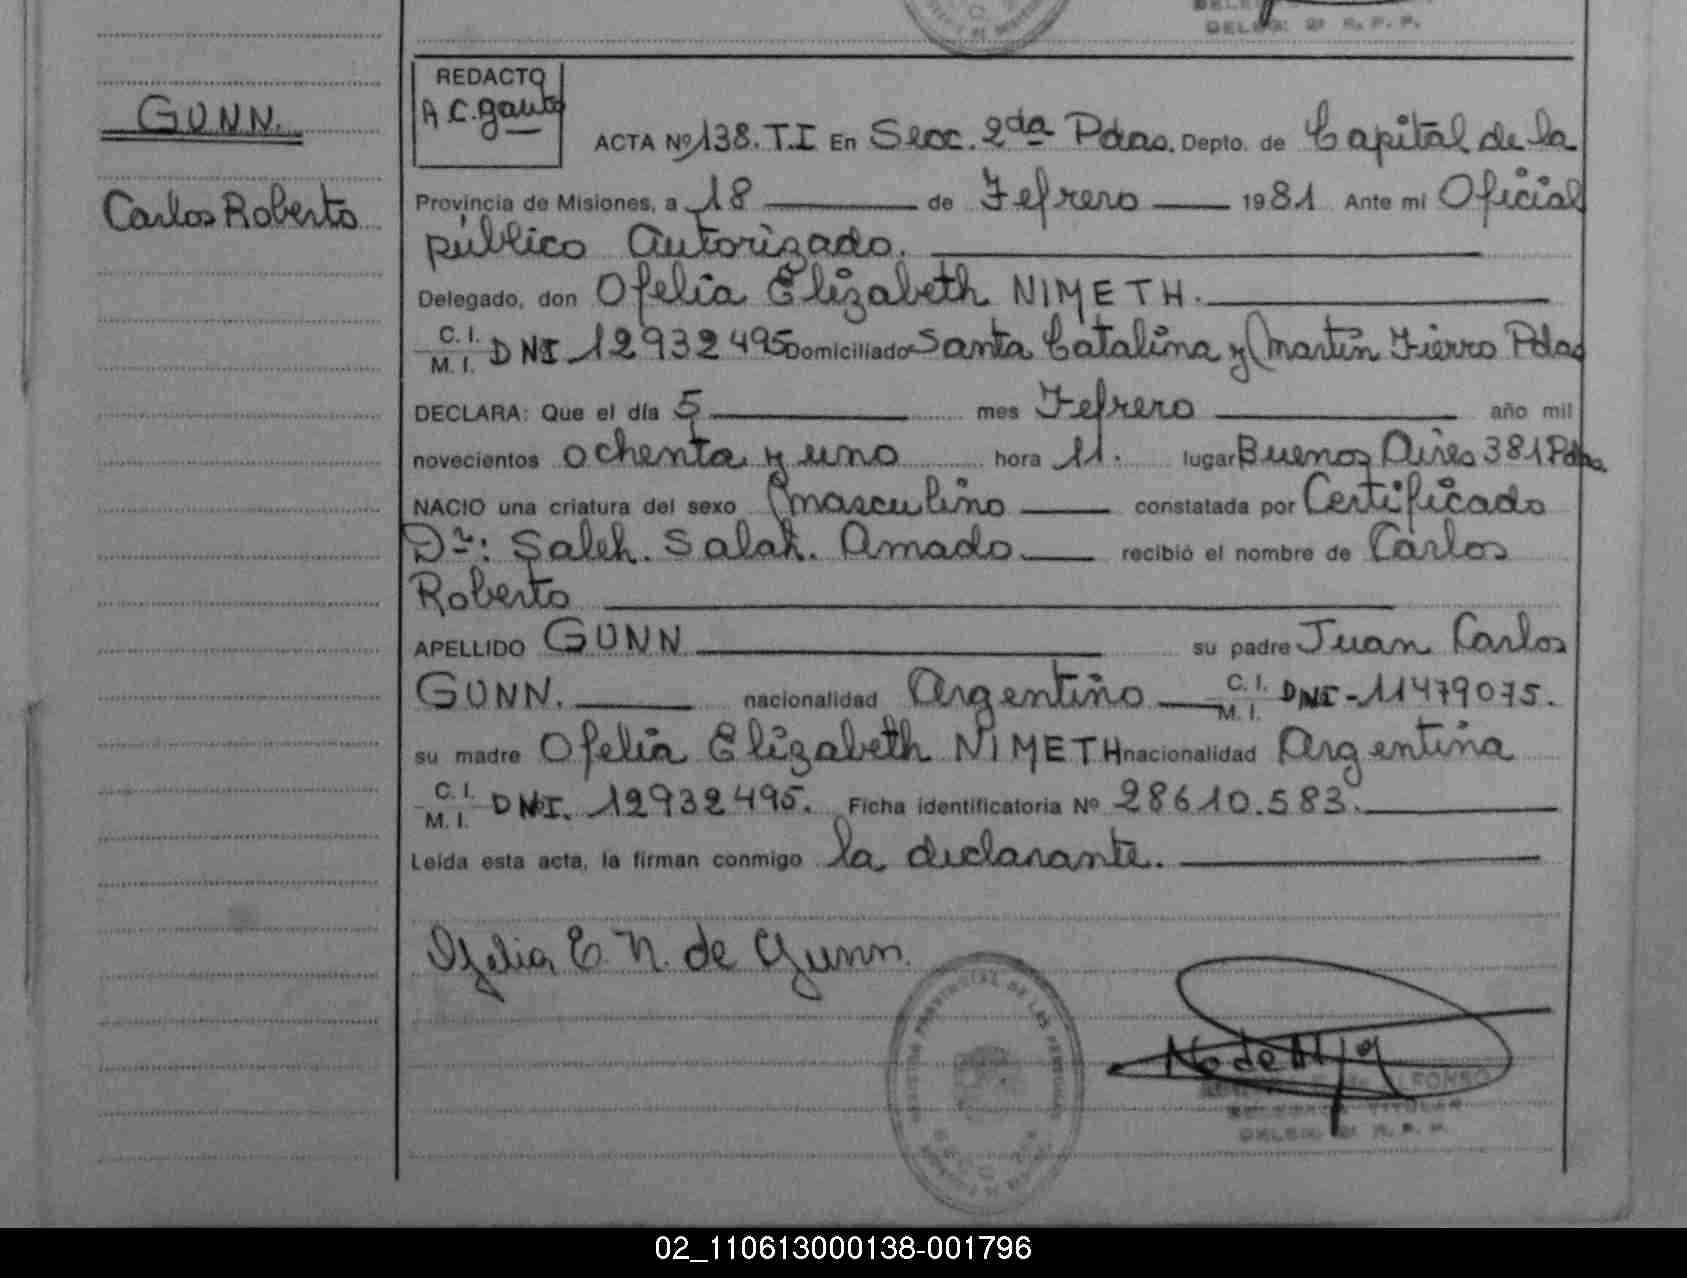 DELEG. 2ª R.P.P.
REDACTO
A C. Gauto
GUNN.
Carlos Roberto
ACTA Nº 138. T.I En Secc. 2da Pdas. Depto. de Capital de la
Provincia de Misiones, a 18 de Febrero 1981 Ante mi Oficial
público Autorizado.
Delegado, don Ofelia Elizabeth NIMETH.
C. I. M. I. DNI 12932495 Domiciliado Santa Catalina y Martín Fierro Pdas
DECLARA: Que el día 5 mes Febrero año mil
novecientos ochenta y uno hora 11. lugar Buenos Aires 381 Pdas.
NACIO una criatura del sexo masculino constatada por Certificado
Dr: Saleh. Salah. Amado recibió el nombre de Carlos
Roberto
APELLIDO GUNN su padre Juan Carlos
GUNN. nacionalidad Argentino C. I. M. I. DNI-11479075.
su madre Ofelia Elizabeth NIMETH nacionalidad Argentina
C. I. M. I. DNI. 12932495. Ficha identificatoria Nº 28610.583.
Leída esta acta, la firman conmigo la declarante.
Ofelia E. N. de Gunn.
REGISTRO PROVINCIAL DE LAS PERSONAS
ALFONSO
DELEGADA TITULAR
DELEG. 2ª R.P.P.
02_110613000138-001796